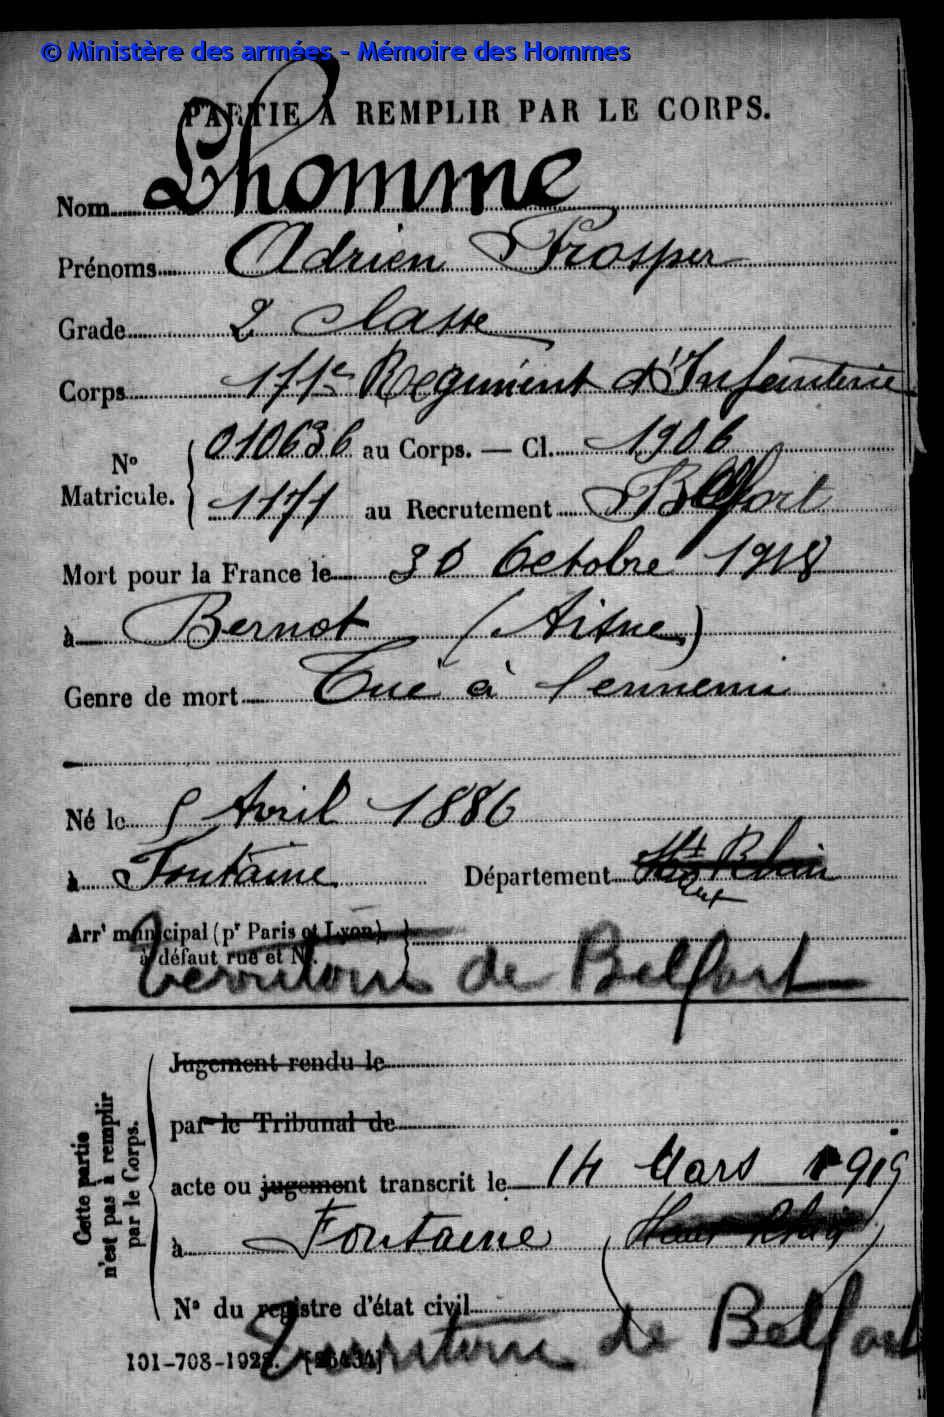 © Ministère des armées - Mémoire des Hommes
PARTIE À REMPLIR PAR LE CORPS.
Nom Lhomme
Prénoms Adrien Prosper
Grade 2 classe
Corps 171e Régiment d'Infanterie
No Matricule. 010636 au Corps. — Cl. 1906
1171 au Recrutement Belfort
Mort pour la France le 30 Octobre 1918
à Bernot (Aisne)
Genre de mort Tué à l'ennemi
Né le 5 Avril 1886
à Fontaine Département Ht Rhin
Arrt municipal (pr Paris et Lyon),
à défaut rue et No.
Territoire de Belfort
Cette partie
n'est pas à remplir
par le Corps.
Jugement rendu le
par le Tribunal de
acte ou jugement transcrit le 14 Mars 1919
à Fontaine (Haut Rhin)
No du registre d'état civil
Territoire de Belfort
101-708-1922. [26434]